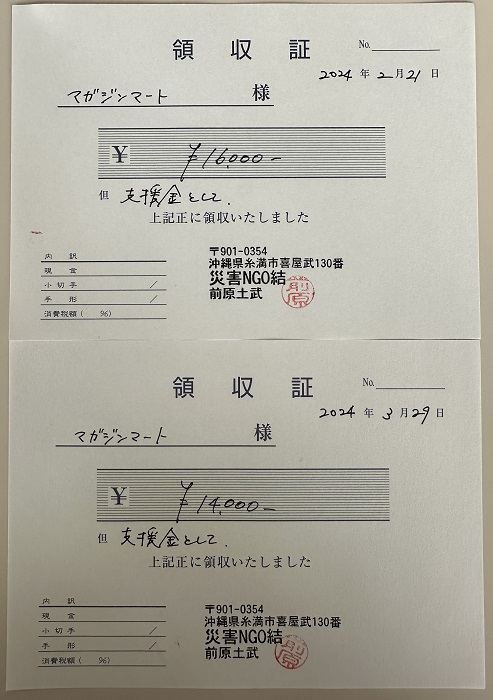 領収証
No.
2024年2月21日
マガジンマート 様
¥ ¥16,000-
但 支援金として.
上記正に領収いたしました
内訳
現金
小切手 /
手形 /
消費税額( %)
〒901-0354
沖縄県糸満市喜屋武130番
災害NGO結
前原土武
前原
領収証
No.
2024年3月29日
マガジンマート 様
¥ ¥14,000-
但 支援金として.
上記正に領収いたしました
内訳
現金
小切手 /
手形 /
消費税額( %)
〒901-0354
沖縄県糸満市喜屋武130番
災害NGO結
前原土武
前原